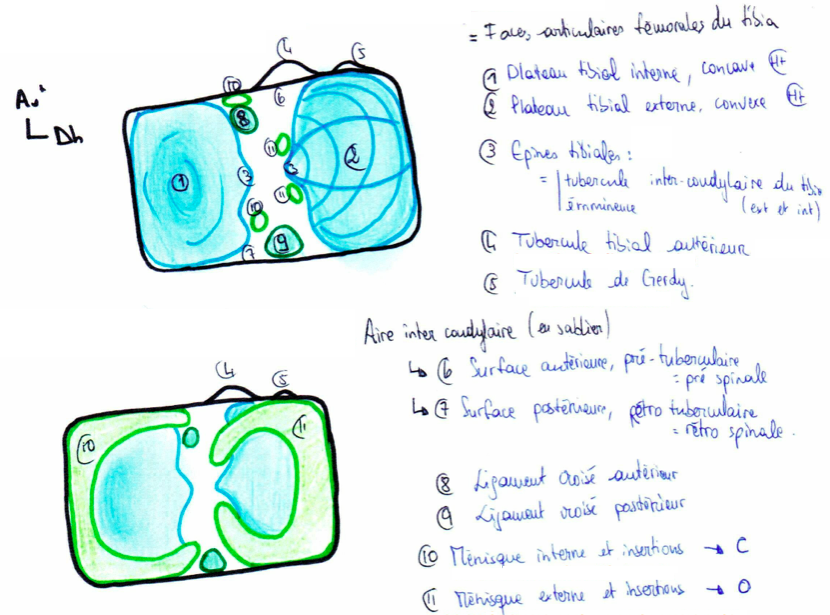 = Faces articulaires fémorales du tibia
① Plateau tibial interne, concave Ht
② Plateau tibial externe, convexe Ht
③ Epines tibiales :
= tubercule inter-condylaire du tibia
émmineuce (ext et int)
④ Tubercule tibial antérieur
⑤ Tubercule de Gerdy.
Av
Dh
④
⑤
⑩
⑥
⑧
⑪
②
①
③
3
⑪
⑩
⑨
⑦
Aire inter condylaire (en sablier)
↳ ⑥ Surface antérieure, pré-tuberculaire
= pré spinale
↳ ⑦ Surface postérieure, rétro tuberculaire
= rétro spinale.
⑧ Ligament croisé antérieur
⑨ Ligament croisé postérieur
⑩ Ménisque interne et insertions → C
⑪ Ménisque externe et insertions → O
④
⑤
⑩
⑪